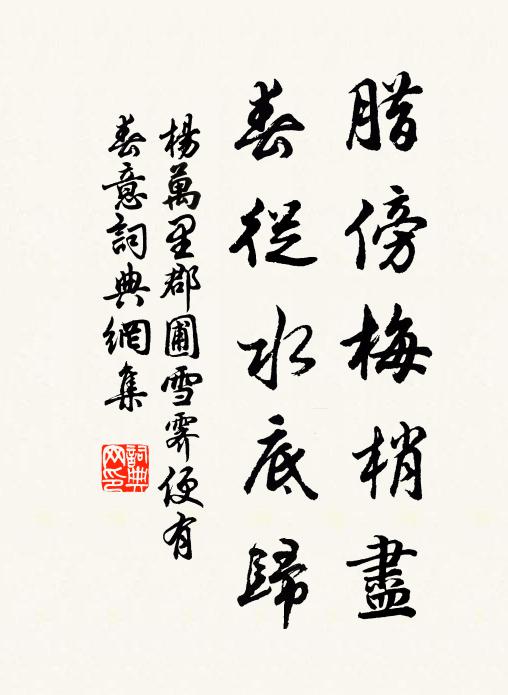 腊傍梅梢盡
春從水底歸
楊萬里郡圃雪霽便有
春意詞典網集
詞典网印